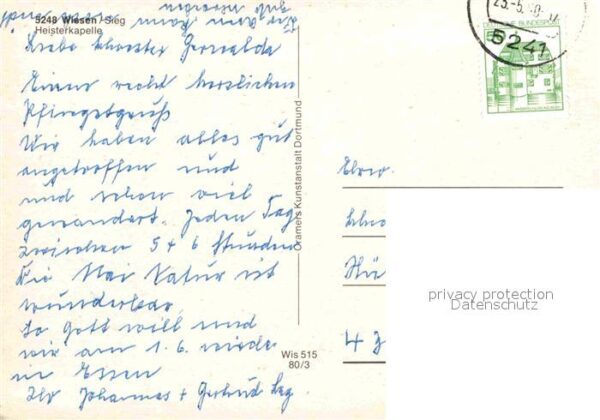 5248 Wissen / Sieg
Heisterkapelle
Liebe Schwester Gerwalda
Einen recht herzlichen
Pfingstgruß
Wir haben alles gut
angetroffen und
und schon viel
gewandert. Jeden Tag
zwischen 5 + 6 Stunden
Die Mai Natur ist
wunderbar
So Gott will sind
wir am 1.6. wieder
in Essen
Ihr Johannes + Gertrud
Cramers Kunstanstalt Dortmund
Wis 515
80/3
5241
DEUTSCHE BUNDESPOST
Ehrw.
4
privacy protection
Datenschutz